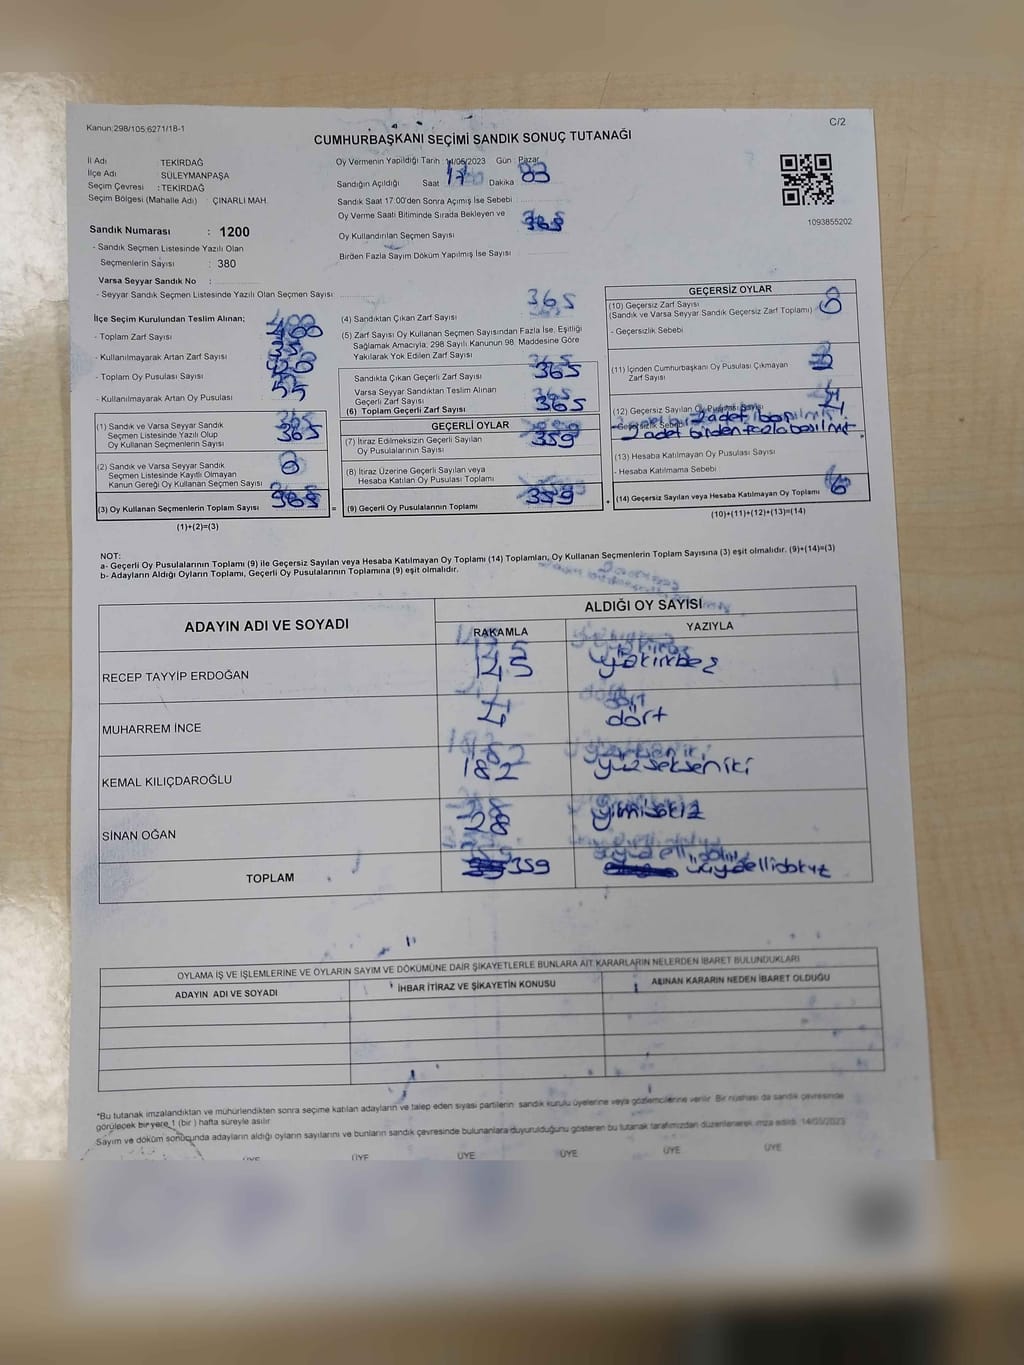 Kanun:298/105:6271/18-1
C/2
CUMHURBAŞKANI SEÇİMİ SANDIK SONUÇ TUTANAĞI
İl Adı : TEKİRDAĞ
İlçe Adı : SÜLEYMANPAŞA
Seçim Çevresi : TEKİRDAĞ
Seçim Bölgesi (Mahalle Adı) : ÇINARLI MAH.
Sandık Numarası : 1200
- Sandık Seçmen Listesinde Yazılı Olan
Seçmenlerin Sayısı : 380
Varsa Seyyar Sandık No :
- Seyyar Sandık Seçmen Listesinde Yazılı Olan Seçmen Sayısı
Oy Vermenin Yapıldığı Tarih : 14/05/2023 Gün : Pazar
Sandığın Açıldığı Saat 17 Dakika
Sandık Saat 17:00'den Sonra Açımış İse Sebebi
Oy Verme Saati Bitiminde Sırada Bekleyen ve
Oy Kullandırılan Seçmen Sayısı
Birden Fazla Sayım Döküm Yapılmış İse Sayısı
1093855202
İlçe Seçim Kurulundan Teslim Alınan;
- Toplam Zarf Sayısı 400
- Kullanılmayarak Artan Zarf Sayısı
- Toplam Oy Pusulası Sayısı
- Kullanılmayarak Artan Oy Pusulası 55
(1) Sandık ve Varsa Seyyar Sandık
Seçmen Listesinde Yazılı Olup
Oy Kullanan Seçmenlerin Sayısı 365
(2) Sandık ve Varsa Seyyar Sandık
Seçmen Listesinde Kayıtlı Olmayan
Kanun Gereği Oy Kullanan Seçmen Sayısı
(3) Oy Kullanan Seçmenlerin Toplam Sayısı 365
(1)+(2)=(3)
(4) Sandıktan Çıkan Zarf Sayısı 365
(5) Zarf Sayısı Oy Kullanan Seçmen Sayısından Fazla İse, Eşitliği
Sağlamak Amacıyla; 298 Sayılı Kanunun 98. Maddesine Göre
Yakılarak Yok Edilen Zarf Sayısı
Sandıkta Çıkan Geçerli Zarf Sayısı 365
Varsa Seyyar Sandıktan Teslim Alınan
Geçerli Zarf Sayısı
(6) Toplam Geçerli Zarf Sayısı 365
GEÇERLİ OYLAR
(7) İtiraz Edilmeksizin Geçerli Sayılan
Oy Pusulasının Sayısı 359
(8) İtiraz Üzerine Geçerli Sayılan veya
Hesaba Katılan Oy Pusulası Toplamı
= (9) Geçerli Oy Pusulalarının Toplamı 359 +
GEÇERSİZ OYLAR
(10) Geçersiz Zarf Sayısı
(Sandık ve Varsa Seyyar Sandık Geçersiz Zarf Toplamı)
- Geçersizlik Sebebi
(11) İçinden Cumhurbaşkanı Oy Pusulası Çıkmayan
Zarf Sayısı 2
(12) Geçersiz Sayılan Oy Pusulası Sayısı 4
- Geçersizlik Sebebi
2 adet birden fazla basılmış
(13) Hesaba Katılmayan Oy Pusulası Sayısı
- Hesaba Katılmama Sebebi
(14) Geçersiz Sayılan veya Hesaba Katılmayan Oy Toplamı 6
(10)+(11)+(12)+(13)=(14)
NOT:
a- Geçerli Oy Pusulalarının Toplamı (9) ile Geçersiz Sayılan veya Hesaba Katılmayan Oy Toplamı (14) Toplamları, Oy Kullanan Seçmenlerin Toplam Sayısına (3) eşit olmalıdır. (9)+(14)=(3)
b- Adayların Aldığı Oyların Toplamı, Geçerli Oy Pusulalarının Toplamına (9) eşit olmalıdır.
ADAYIN ADI VE SOYADI
ALDIĞI OY SAYISI
RAKAMLA YAZIYLA
RECEP TAYYİP ERDOĞAN 145 yüzkırkbeş
MUHARREM İNCE 4 dört
KEMAL KILIÇDAROĞLU 182 yüzsekseniki
SİNAN OĞAN 28 yirmisekiz
TOPLAM 359 üçyüzellidokuz
OYLAMA İŞ VE İŞLEMLERİNE VE OYLARIN SAYIM VE DÖKÜMÜNE DAİR ŞİKAYETLERLE BUNLARA AİT KARARLARIN NELERDEN İBARET BULUNDUKLARI
ADAYIN ADI VE SOYADI İHBAR İTİRAZ VE ŞİKAYETİN KONUSU ALINAN KARARIN NEDEN İBARET OLDUĞU
*Bu tutanak imzalandıktan ve mühürlendikten sonra seçime katılan adayların ve talep eden siyasi partilerin sandık kurulu üyelerine veya gözlemcilerine verilir. Bir nüshası da sandık çevresinde
görülecek bir yere 1 (bir) hafta süreyle asılır
Sayım ve döküm sonucunda adayların aldığı oyların sayılarını ve bunların sandık çevresinde bulunanlara duyurulduğunu gösteren bu tutanak tarafımızdan düzenlenerek imza edildi. 14/05/2023
ÜYE ÜYE ÜYE ÜYE ÜYE ÜYE